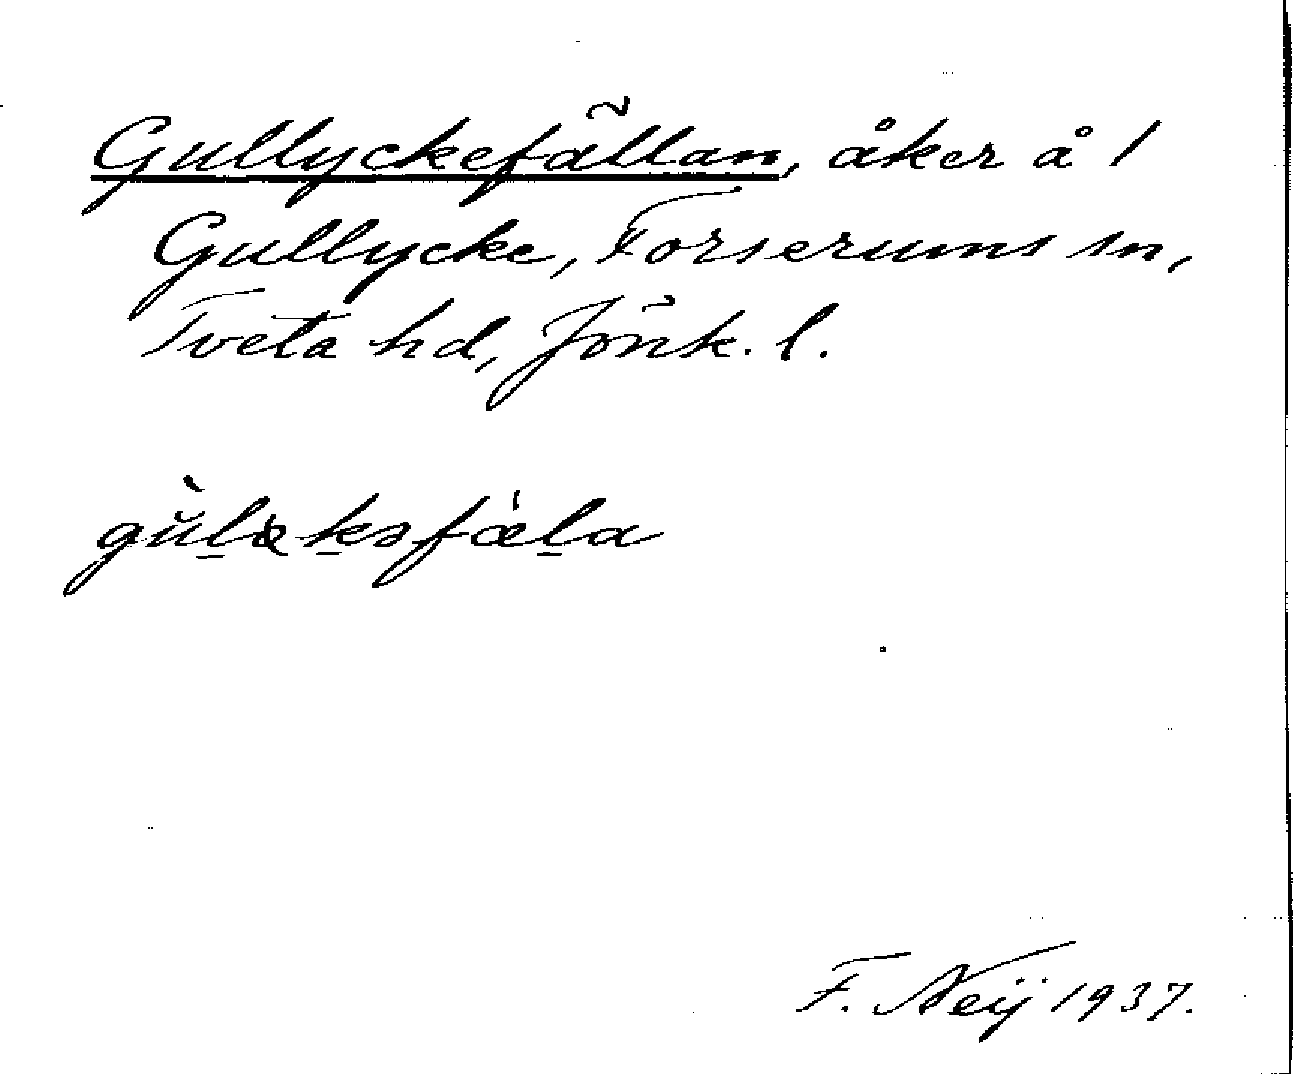 Gullyckefällan, åker å 1
Gullycke, Forserums sn,
Tveta hd, Jönk. l.
F. Neij 1937.